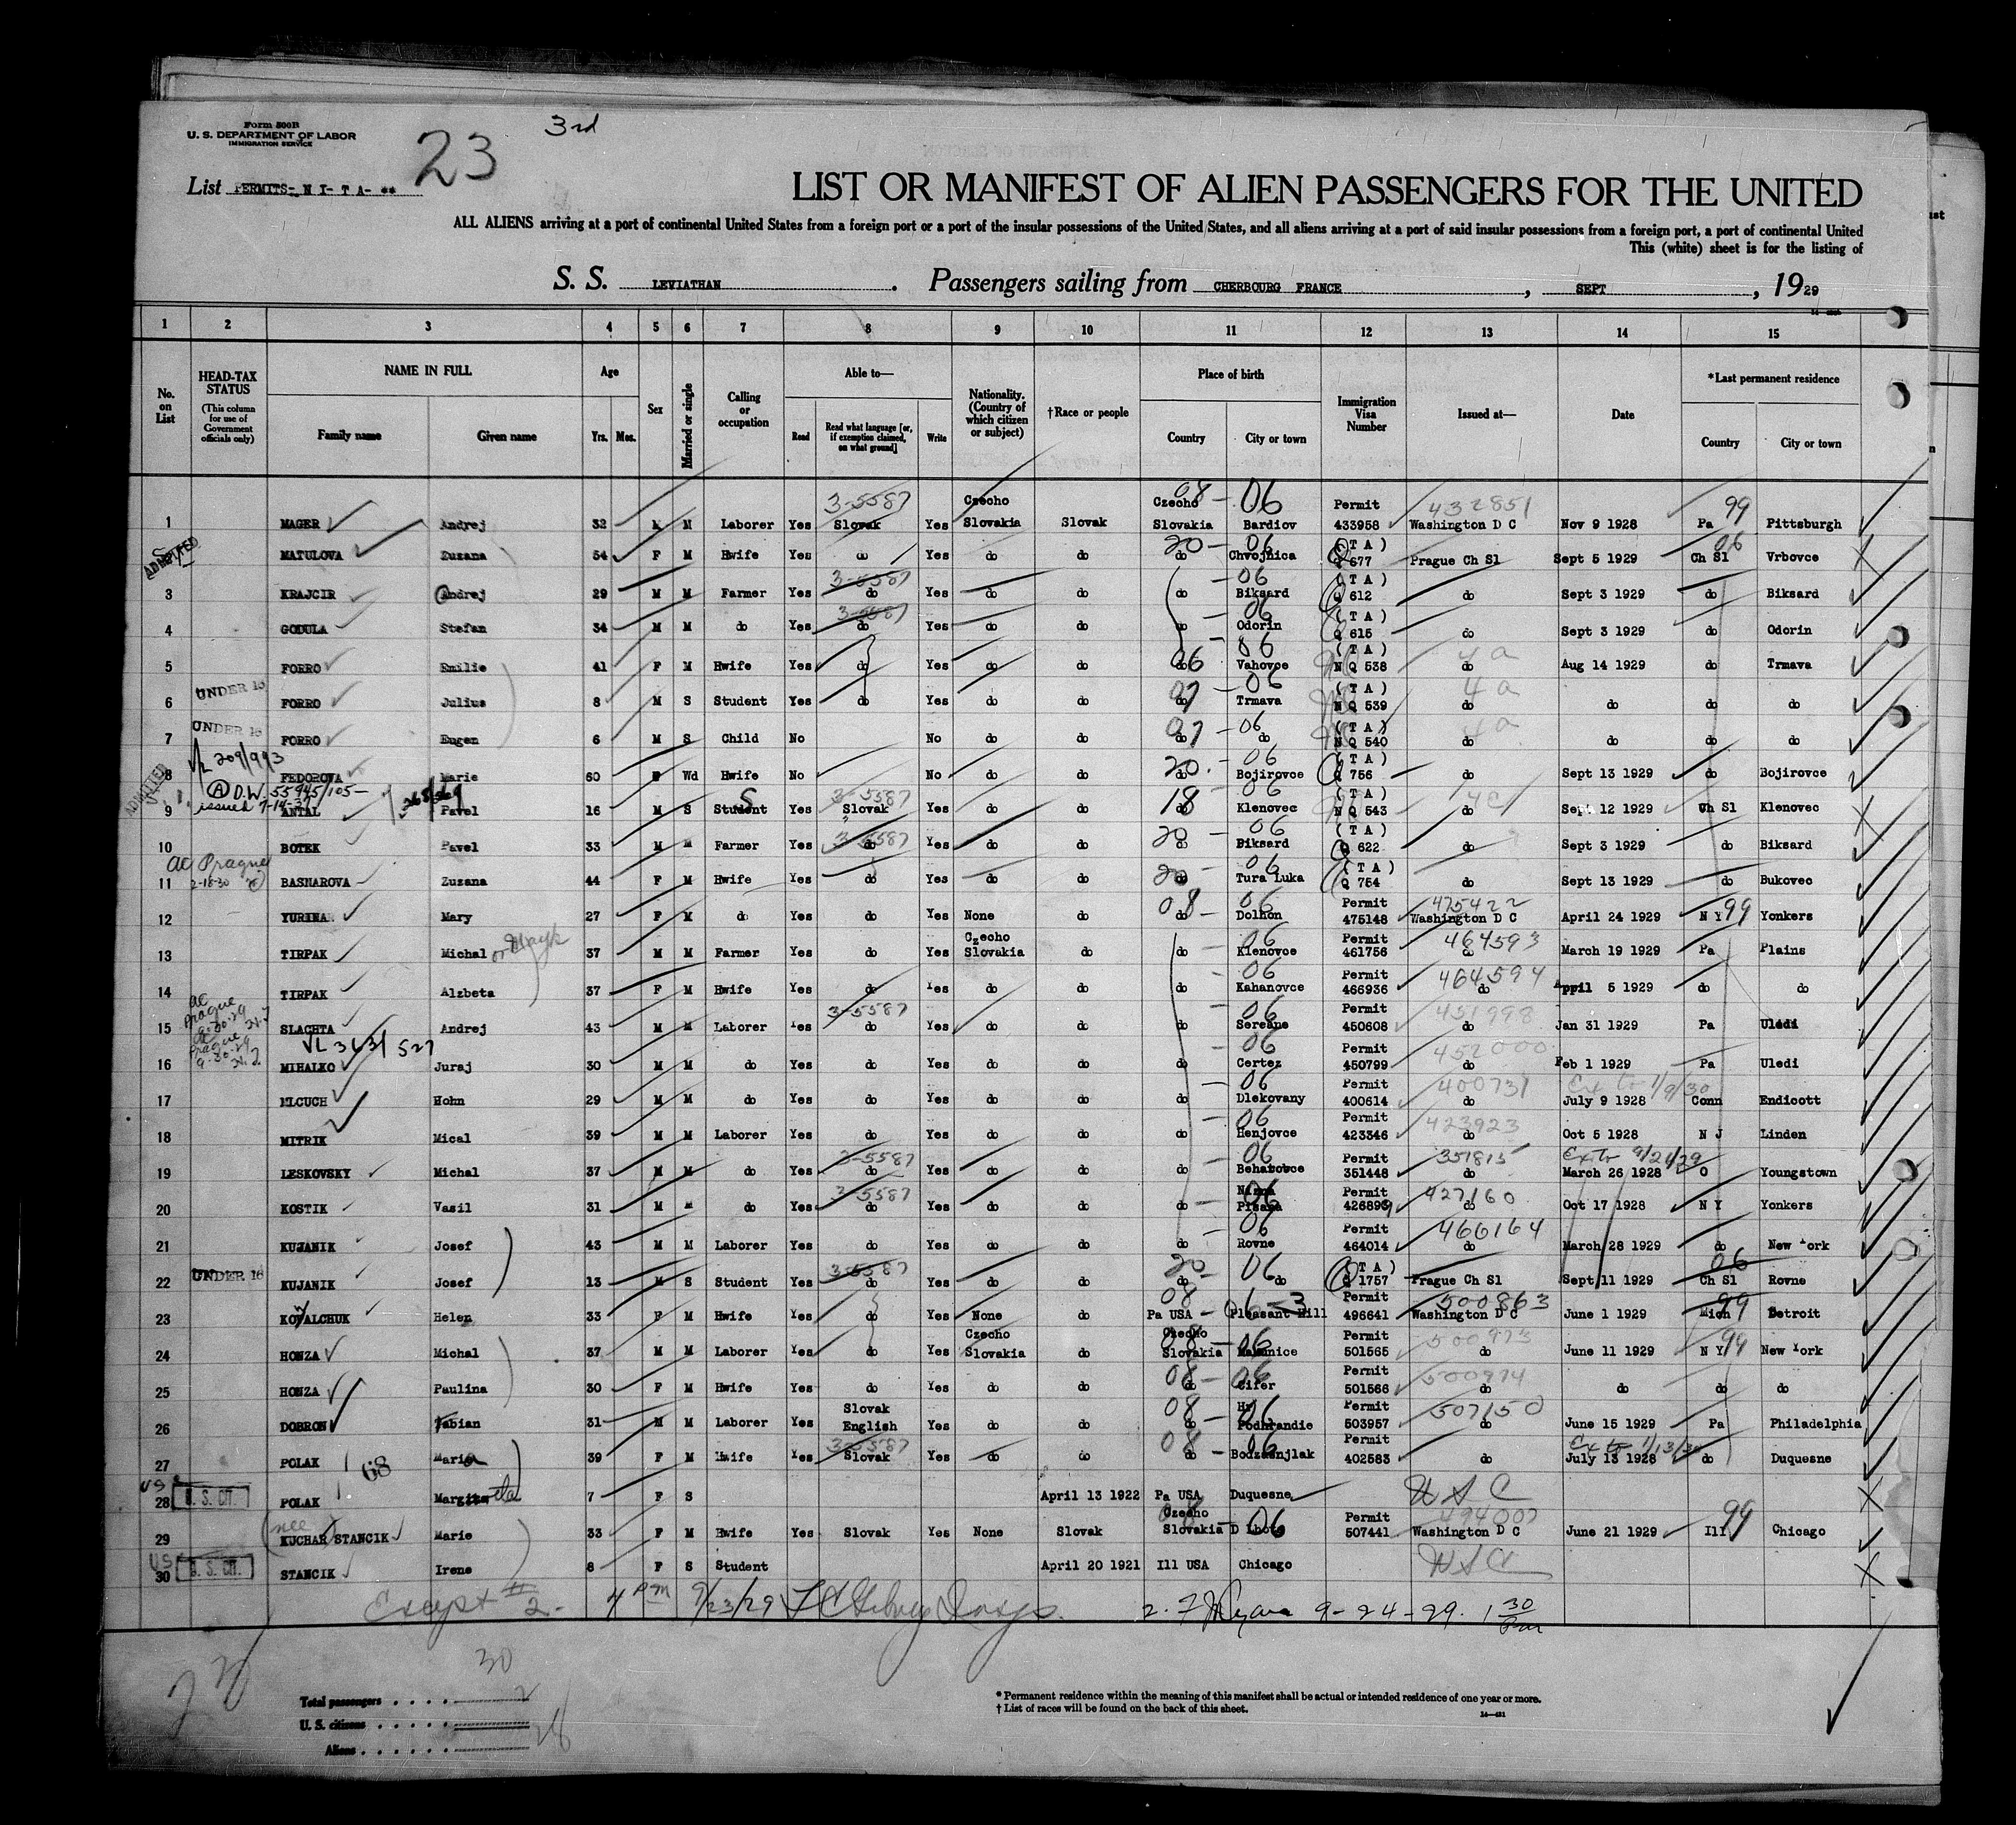 Form 500B
U. S. DEPARTMENT OF LABOR
IMMIGRATION SERVICE
23
3rd
List PERMITS- N I- T A- **
LIST OR MANIFEST OF ALIEN PASSENGERS FOR THE UNITED
ALL ALIENS arriving at a port of continental United States from a foreign port or a port of the insular possessions of the United States, and all aliens arriving at a port of said insular possessions from a foreign port, a port of continental United
This (white) sheet is for the listing of
S. S. LEVIATHAN. Passengers sailing from CHERBOURG FRANCE, SEPT, 1929
1 2 3 4 5 6 7 8 9 10 11 12 13 14 15
No. on List
HEAD-TAX STATUS (This column for use of Government officials only)
NAME IN FULL
Family name Given name
Age
Yrs. Mos.
Sex
Married or single
Calling or occupation
Able to—
Read Read what language [or, if exemption claimed, on what ground] Write
Nationality. (Country of which citizen or subject)
†Race or people
Place of birth
Country City or town
Immigration Visa Number
Issued at—
Date
*Last permanent residence
Country City or town
3-5587 Czecho Czecho 08 - 06 Permit 432851 99
1 MAGER Andrej 32 M M Laborer Yes Slovak Yes Slovakia Slovak Slovakia Bardiov 433958 Washington D C Nov 9 1928 Pa Pittsburgh
ADMITTED 20 - 06 (T A) 06
MATULOVA Zuzana 54 F M Hwife Yes do Yes do do do Chvojnica Q 677 Prague Ch Sl Sept 5 1929 Ch Sl Vrbovce
3-5587 - 06 (T A)
3 KRAJCIR Andrej 29 M M Farmer Yes do Yes do do do Biksard Q 612 do Sept 3 1929 do Biksard
3-5587 06 (T A)
4 GODULA Stefan 34 M M do Yes do Yes do do do Odorin Q 615 do Sept 3 1929 do Odorin
06 - 06 (T A) 4 a
5 FORRO Emilie 41 F M Hwife Yes do Yes do do do Vahovce N Q 538 do Aug 14 1929 do Trmava
UNDER 16 07 - 06 (T A) 4 a
6 FORRO Julius 8 M S Student Yes do Yes do do do Trmava N Q 539 do do do do
UNDER 16 07 - 06 (T A) 4 a
7 FORRO Eugen 6 M S Child No No do do do do N Q 540 do do do do
VL 209/993 20. - 06 (T A)
ADMITTED
8 FEDOROVA Marie 60 F Wd Hwife No No do do do Bojirovce Q 756 do Sept 13 1929 do Bojirovce
(A) D.W. 55945/105- S 3-5587 18 06 (T A)
issued 7-14-37
9 ANTAL Pavel 16 M S Student Yes Slovak Yes do do do Klenovec N Q 543 do Sept 12 1929 Ch Sl Klenovec
3-5587 20 - 06 (T A)
10 BOTEK Pavel 33 M M Farmer Yes do Yes do do do Biksard Q 622 do Sept 3 1929 do Biksard
ac Prague 2-18-30 20 - 06 (T A)
11 BASNAROVA Zuzana 44 F M Hwife Yes do Yes do do do Tura Luka Q 754 do Sept 13 1929 do Bukovec
08 - 06 Permit 475422 99
12 YURINA Mary 27 F M do Yes do Yes None do do Dolhon 475148 Washington D C April 24 1929 N Y Yonkers
Czecho 06 Permit 464593
13 TIRPAK Michal 37 M M Farmer Yes do Yes Slovakia do do Klenovce 461756 do March 19 1929 Pa Plains
- 06 Permit 464594
14 TIRPAK Alzbeta 37 F M Hwife Yes do Yes do do do Kahanovce 466936 do April 5 1929 do do
ac Prague 3-5587 06 Permit 451998
15 SLACHTA Andrej 43 M M Laborer Yes do Yes do do do Sereane 450608 do Jan 31 1929 Pa Uledi
VL 363/527 - 06 Permit 452000
16 MIHALKO Juraj 30 M M do Yes do Yes do do do Certez 450799 do Feb 1 1929 Pa Uledi
06 Permit 400731 Ex to 1/9/30
17 MLCUCH Hohn 29 M M do Yes do Yes do do do Dlekovany 400614 do July 9 1928 Conn Endicott
- 06 Permit 423923
18 MITRIK Mical 39 M M Laborer Yes do Yes do do do Henjovce 423346 do Oct 5 1928 N J Linden
3-5587 06 Permit 351815 Ex to 9/21/29
19 LESKOVSKY Michal 37 M M do Yes do Yes do do do 351448 do March 26 1928 O Youngstown
3-5587 06 Permit 427160
20 KOSTIK Vasil 31 M M do Yes do Yes do do do 426899 do Oct 17 1928 N Y Yonkers
06 Permit 466164
21 KUJANIK Josef 43 M M Laborer Yes do Yes do do do Rovne 464014 do March 28 1929 do New York
UNDER 16 3-5587 20 - 06 (T A) 06
22 KUJANIK Josef 13 M S Student Yes do Yes do do do do Q 1757 Prague Ch Sl Sept 11 1929 Ch Sl Rovne
08 06-3 Permit 500863 99
23 KOWALCHUK Helen 33 F M Hwife Yes do Yes None do Pa USA Pleasant Hill 496641 Washington D C June 1 1929 Mich Detroit
Czecho Czecho 08 - 06 Permit 500973 99
24 HONZA Michal 37 M M Laborer Yes do Yes Slovakia do Slovakia 501565 do June 11 1929 N Y New York
08 - 06 Permit 500974
25 HONZA Paulina 30 F M Hwife Yes do Yes do do do Cifer 501566 do do do do
Slovak 08 - 06 Permit 507150
26 DOBRON Fabian 31 M M Laborer Yes English Yes do do do Podhrandie 503957 do June 15 1929 Pa Philadelphia
3-5587 08 - 06 Permit Ex to 1/13/30
27 POLAK 68 Maria 39 F M Hwife Yes Slovak Yes do do do Bodzasnjlak 402583 do July 13 1928 do Duquesne
US U. S. CIT.
28 POLAK 7 F S April 13 1922 Pa USA Duquesne U S C
nee Czecho 08 - 06 Permit 494007 99
29 KUCHAR STANCIK Marie 33 F M Hwife Yes Slovak Yes None Slovak Slovakia D Lhota 507441 Washington D C June 21 1929 Ill Chicago
US U. S. CIT.
30 STANCIK Irene 8 F S Student April 20 1921 Ill USA Chicago U S C
Except # 2- 4 PM 9/23/29 9-24-29. 1 30 PM
30
Total passengers
2
U. S. citizens
28
Aliens
* Permanent residence within the meaning of this manifest shall be actual or intended residence of one year or more.
† List of races will be found on the back of this sheet.
14—481